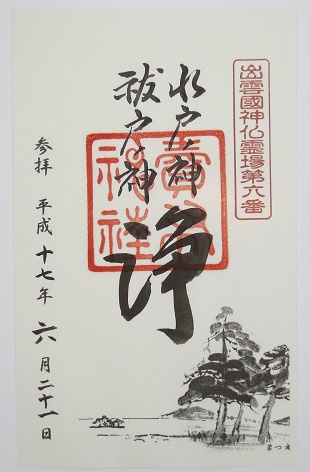 出雲國神仏霊場第六番
水戸ノ神
祓戸ノ神
浄
賣布
神社
参拝 平成十七年六月二十一日